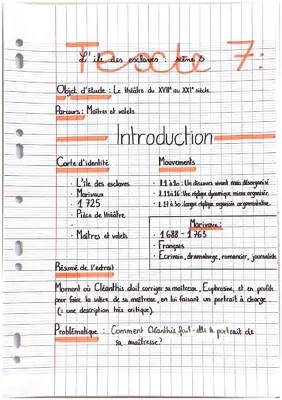 Texte 7:
L'île des esclaves : scène 3
Objet d'étude : Le théâtre du XVIIe au XXIe siècle.
Parcours : Maîtres et valets
Introduction
Carte d'identité
· L'île des esclaves
· Marivaux
· 1725
· Pièce de théâtre
·
· Maîtres et valets
Mouvements
· l.1 à 10 : Un discours vivant mais désorganisé
· l.11 à 16 : Une réplique dynamique mieux organisée
· l.17 à 30 : longue réplique organisée argumentative.
Marivaux :
· 1688 - 1763
· Français
· Écrivain, dramaturge, romancier, journaliste
Résumé de l'extrait
Moment où Cléanthis doit corriger sa maîtresse, Euphrosine, et en profite
pour faire la satire de sa maîtresse, en lui faisant un portrait à charge
(= une description très critique).
Problématique : Comment Cléanthis fait-elle le portrait de
sa maîtresse ?